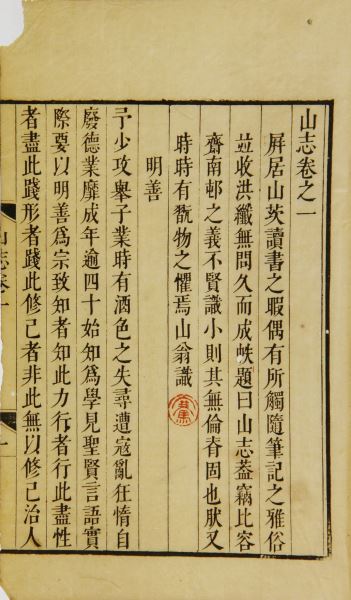 山志卷之一
屏居山茨讀書之暇偶有所觸隨筆記之雅俗
竝收洪纖無問久而成帙題曰山志葢竊比容
齋南邨之義不賢識小則其無倫脊固也肰又
時時有翫物之懼焉山翁識
明善
予少攻舉子業時有酒色之失尋遭寇亂徃惰自
廢德業靡成年逾四十始知爲學見聖賢言語實
際要以明善爲宗致知者知此力行者行此盡性
者盡此踐形者踐此修己者非此無以修己治人
山志卷一
一